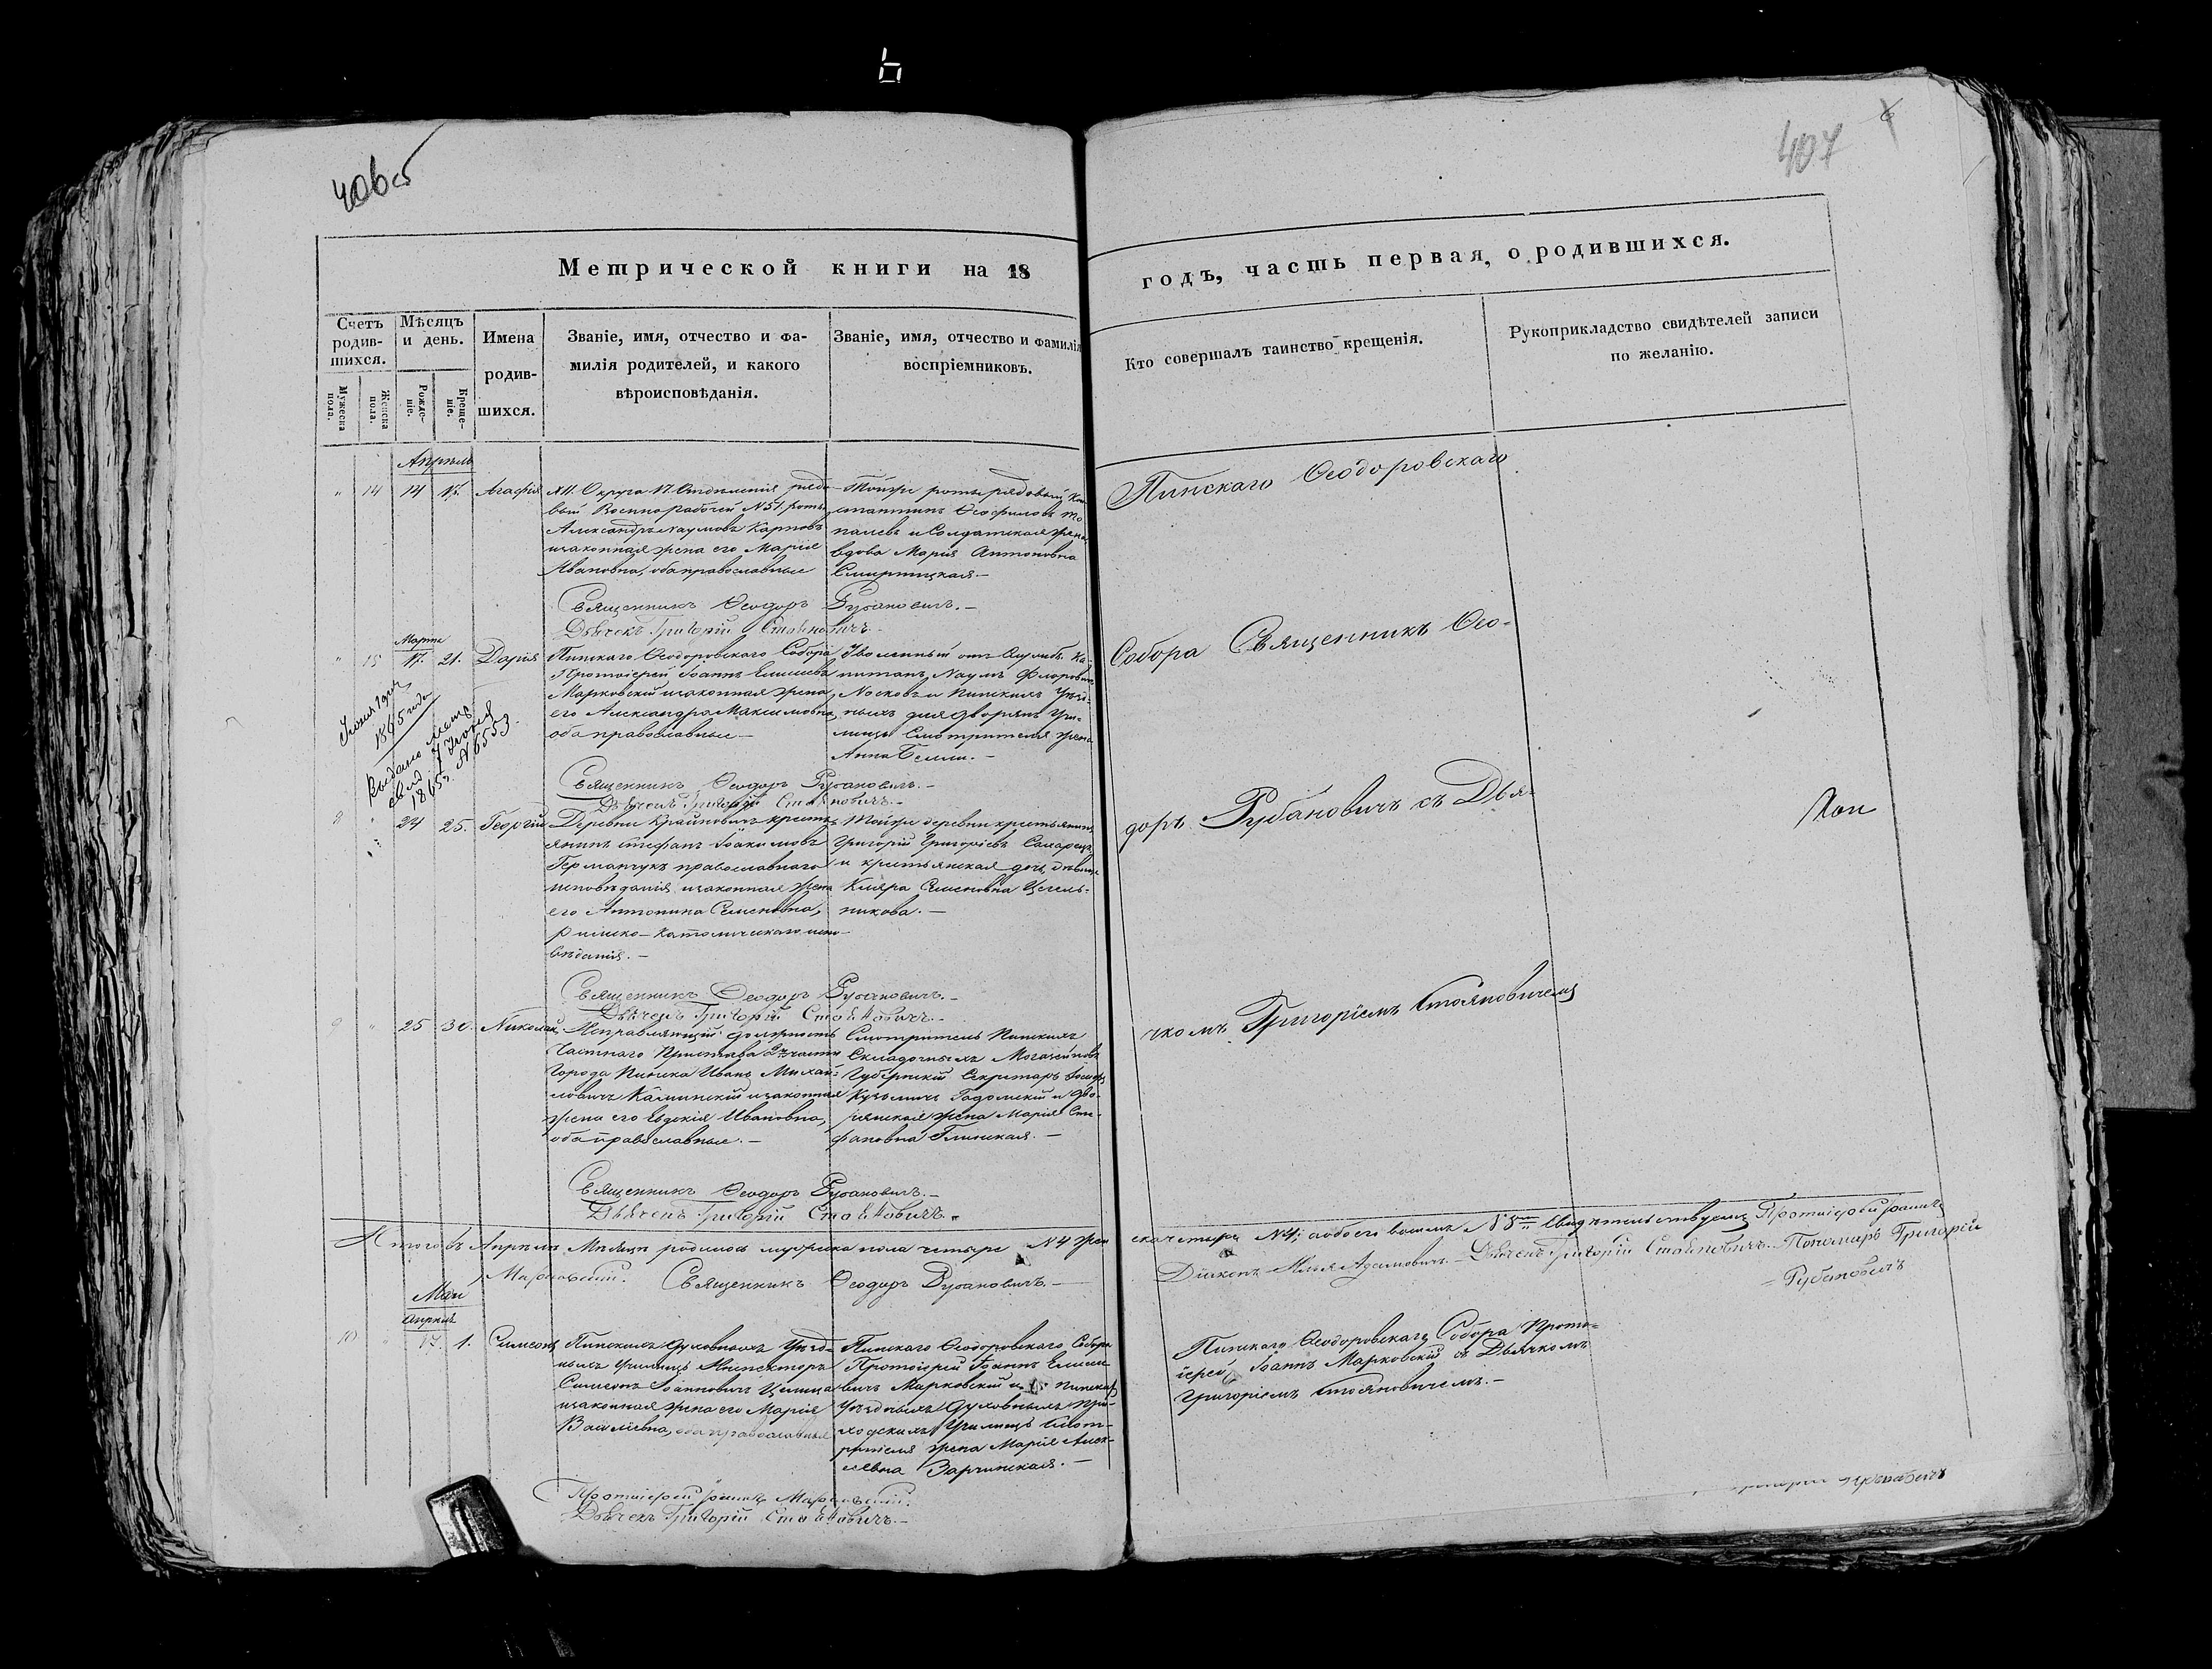 406об
407
6
Метрической книги на 18
годъ, часть первая, о родившихся.
Счетъ родив-шихся.
Мужеска пола.
Женска пола.
Мѣсяцъ и день.
Рожде-ніе.
Креще-ніе.
Имена
родив-
шихся.
Званіе, имя, отчество и фа-
милія родителей, и какого
вѣроисповѣданія.
Званіе, имя, отчество и фамилія
воспріемниковъ.
Кто совершалъ таинство крещенія.
Рукоприкладство свидѣтелей записи
по желанію.
Апрѣль
" 14 14 17. Агафія
XI. Округа VI. Отдѣленія рядо-
вый Военнорабочей №51, роты
Александръ Наумовъ Карповъ
изаконная жена его Марія
Ивановна, оба православные
Тойже роты рядовый Кон
стантинъ Ѳеофиловъ
и Солдатская жена
вдова Марія Антоновна
Священникъ Ѳеодоръ Рубановичъ.—
Дьячекъ Григорій Стояновичъ.—
Марта
" 15 17. 21. Дарія
Пинскаго Ѳеодоровскаго Собора
Протоіерей Іоаннъ Елисеевъ
Марковскій изаконная жена
его Александра Максимовна,
оба православные—
Уволенный отъ службы Ка-
питанъ Наумъ Флоровичъ
Носковъ и Пинскихъ Уѣзд-
ныхъ для дворянъ Учи-
лищъ Смотрителя жена
Анна Белли.—
Іюня 19 дня
1845 года
Выдано метр.
свид.
1865 г. №6553.
Священникъ Ѳеодоръ Рубановичъ.—
Дьячекъ Григорій Стояновичъ.—
8 " 24 25. Георгій
Деревни крестъ
янинъ Стефанъ Іоакимовъ
Германчукъ православнаго
исповѣданія, изаконная жена
его Антонина Семеновна,
римско-католическаго испо-
вѣданія.—
Тойже деревни крестьянинъ
Григорій Григоріевъ
и крестьянская дочь дѣвица
Клара Семеновна Цегель-
никова.—
Священникъ Ѳеодоръ Рубановичъ.—
Дьячекъ Григорій Стояновичъ.—
9 " 25 30. Николай
Исправляющій должность
Частнаго Пристава 2й части
Города Пинска Иванъ Михай-
ловичъ Калинскій изаконная
жена его Евдокія Ивановна,
оба православные.—
Смотритель Пинскихъ
Складочныхъ Магазейновъ
Губернскій Секретарь Іосифъ
Кузьмичъ Гадомскій и дво-
рянская жена Марія Сте-
фановна Глинская.—
Священникъ Ѳеодоръ Рубановичъ.—
Дьячекъ Григорій Стояновичъ.—
Пинскаго Ѳеодоровскаго
Собора Священникъ Ѳео-
доръ Рубановичъ съ Дья-
чкомъ Григоріемъ Стояновичемъ
Итого въ Апрѣлѣ Мѣсяцѣ родилось мужеска пола четыре №4 жен
ска четыре №4; а обоего восемь №8. Свидѣтельствуемъ Протоіерей Іоаннъ
Марковскій. Священникъ Ѳеодоръ Рубановичъ.—
Діаконъ Илья Адамовичъ.— Дьячекъ Григорій Стояновичъ.— Пономарь Григорій
— Рубановичъ
Май
Апрѣля
10 " 17. 1. Симеонъ
Пинскихъ Духовныхъ Уѣзд-
ныхъ Училищъ Инспекторъ
Симеонъ Іоанновичъ
изаконная жена его Марія
Васильевна, оба православные
Пинскаго Ѳеодоровскаго Собора
Протоіерей Іоаннъ Елисее
вичъ Марковскій и Пинскихъ
Уѣздныхъ Духовныхъ При-
ходскихъ Училищъ Смот-
рителя жена Марія Алек-
сѣевна
Пинскаго Ѳеодоровскаго Собора Прото-
іерей, Іоаннъ Марковскій съ Дьячкомъ
Григоріемъ Стояновичемъ.—
Протоіерей Іоаннъ Марковскій.
Дьячекъ Григорій Стояновичъ.—